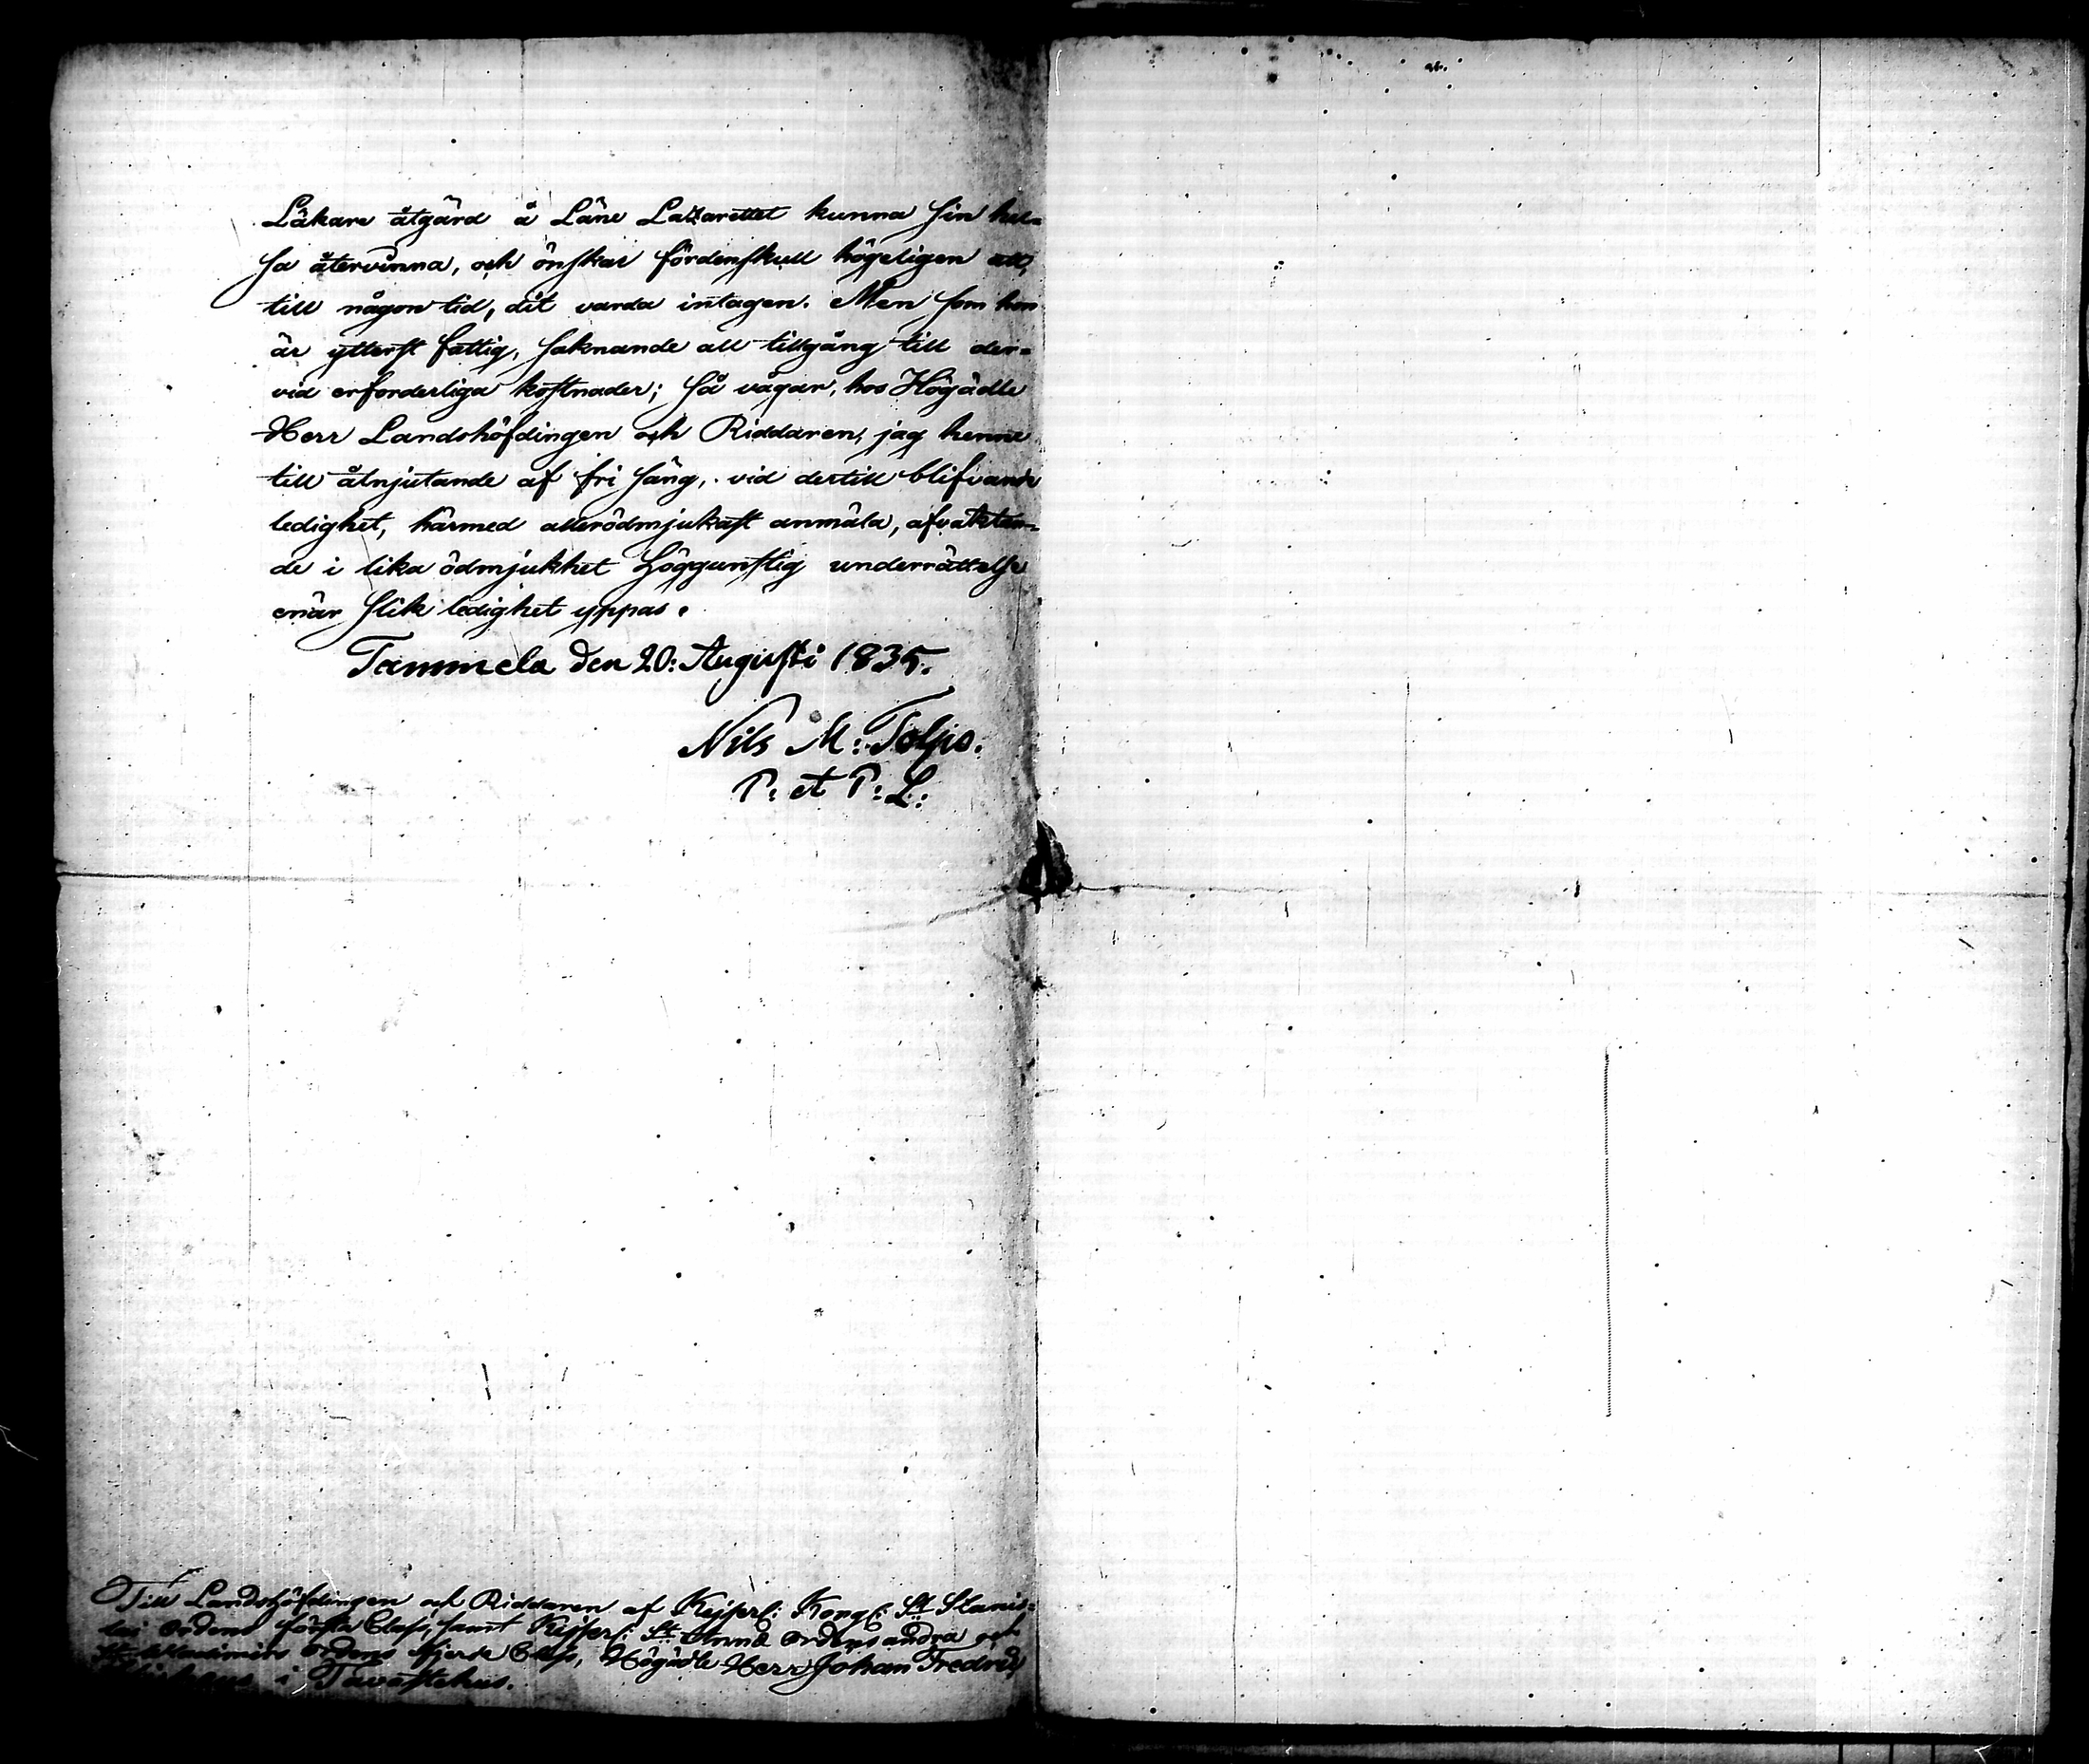 Läkare åtgärd å Läne Lazarettet kunna sin hel-
sa återvinna, och önskar fördenskull högeligen att,
till någon tid, dit varda intagen. Men som hon
är ytterst fattig, saknande all tillgång till der-
vid erforderliga kostnader; så vågar, hos Högädle
Herr Landshöfdingen och Riddaren, jag henne
till åtnjutande af fri säng, vid dertill blifvande
ledighet, härmed allerödmjukast anmäla, afvaktan-
de i lika ödmjukhet Höggunstig underrättelse
enär slik ledighet yppas.
Tammela den 20: Augusti 1835.
Nils M: Tolpo.
P: et P: L:
Till Landshöfdingen och Riddaren af Kejserl: Kongl: St Stanis-
lai Ordens första Class, samt Kejserl: St Annæ Ordens andra och
St Wladimirs Ordens fjerde Class, Högädle Herr Johan Fredric
i Tavastehus.